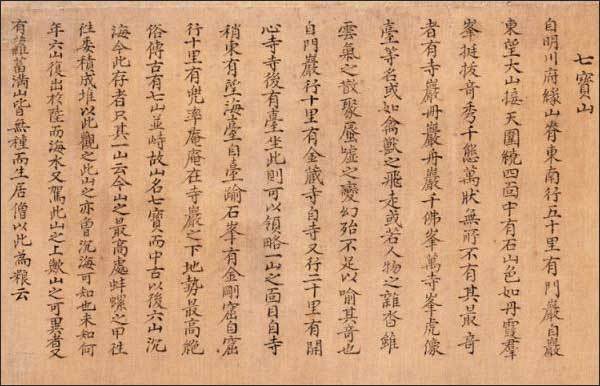 七寶山
自明川府緣山脊東南行五十里有門巖自巖
東望大山接天圍繞四面中有石山色如丹霞羣
峯挺拔奇秀千態萬狀無所不有其最奇
者有寺巖丹巖丹巖千佛峯萬寺峯虎像
臺等名或如禽獸之飛走或若人物之雜沓雖
雲氣之散聚蜃墟之變幻殆不足以喻其奇也
自門巖行十里有金藏寺自寺又行二十里有開
心寺寺後有臺坐此則可以領略一山之面目自寺
稍東有望海臺自臺踰石峯有金剛窟自窟
行十里有兜率庵庵在寺巖之下地勢最高絶
俗傳古有七山並峙故山名七寶而中古以後六山沉
海今此存者只其一山云今山之最高處蚌螺之甲往
往委積成堆以此觀之此山之亦曾沉海可知也未知何
年六山復出於陸而海水又駕此山之上歟山之可異者又
有蘿葍滿山皆無種而生居僧以此為粮云